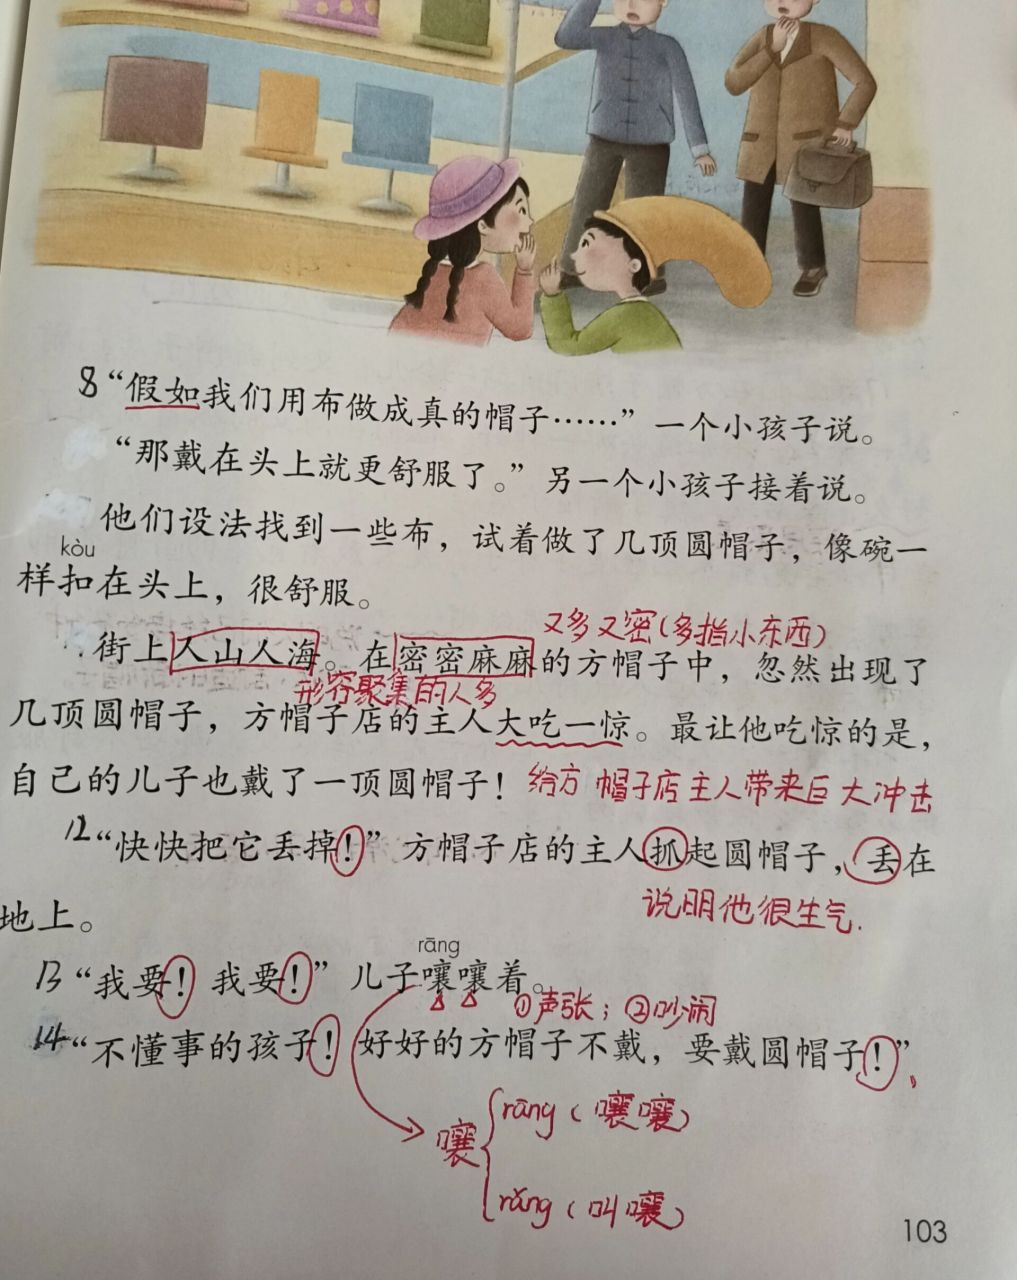 8“假如我们用布做成真的帽子……”一个小孩子说。
“那戴在头上就更舒服了。”另一个小孩子接着说。
他们设法找到一些布，试着做了几顶圆帽子，像碗一
kòu
样扣在头上，很舒服。
又多又密(多指小东西)
街上人山人海。在密密麻麻的方帽子中，忽然出现了
形容聚集的人多
几顶圆帽子，方帽子店的主人大吃一惊。最让他吃惊的是，
自己的儿子也戴了一顶圆帽子！ 给方帽子店主人带来巨大冲击
12“快快把它丢掉！”方帽子店的主人抓起圆帽子，丢在
说明他很生气.
地上。
rāng
13“我要！我要！”儿子嚷嚷着。
①声张；②吵闹
14“不懂事的孩子！好好的方帽子不戴，要戴圆帽子！”
rāng(嚷嚷)
嚷
rǎng(叫嚷)
103